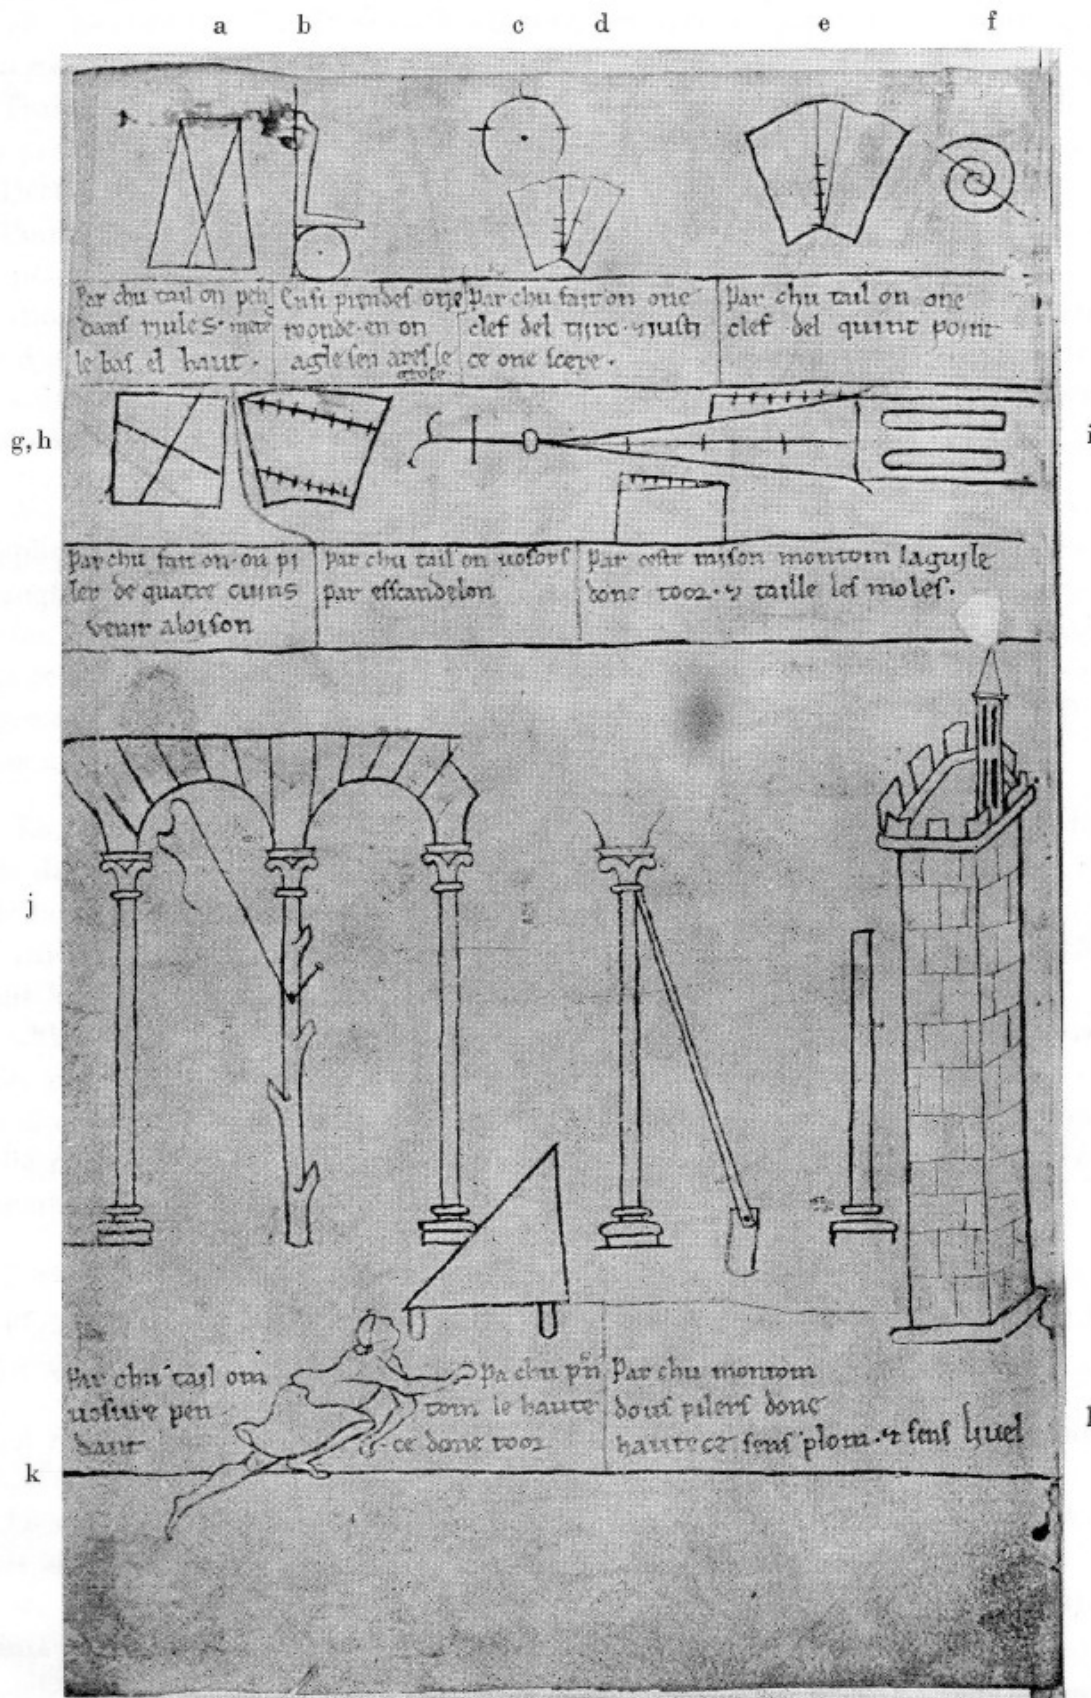 a b c d e f
par chu tail on pen
dans riules · mete
le bas el haut ·
Ensi prendes one
roonde · en on
agle sen ares le
grose
par chu fait on one
clef del tierc · iusti
ce one scere ·
par chu tail on one
clef del quint point
g, h
i
par chu fait on · on pi
ler de quatre cuins
venir a loison
par chu tail on vosors
par esscandelon
par ceste raison montom laguile
done toor · & taille les moles ·
j
par chu tail om
vosure pen
dant
pa chu pn
tom le haute
ce done toor
par chu montom
dous pilers done
hautece sens plom · & sens livel
k
l